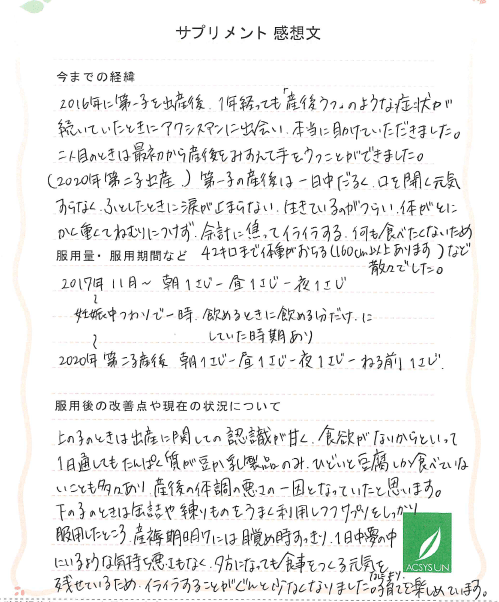 サプリメント 感想文
今までの経緯
2016年に第一子を出産後、1年経っても「産後うつ」のような症状が
続いていたときにアクシスマンに出会い、本当に助けていただきました。
二人目のときは最初から産後をみすえて手をうつことができました。
(2020年第二子出産) 第一子の産後は一日中だるく、口を開く元気
すらなく、ふとしたときに涙が止まらない、生きているのがつらい、体がとに
かく重くてねむりにつけず、余計に焦ってイライラする、何も食べたくないため
服用量・服用期間など 42キロまで体重がおちる(160cm以上あります)など
散々でした。
2017年11月〜 朝1さじ-昼1さじ-夜1さじ
〜
妊娠中つわりで一時、飲めるときに飲める分だけ、に
していた時期あり
〜
2020年 第二子産後 朝1さじ-昼1さじ-夜1さじ-ねる前1さじ.
服用後の改善点や現在の状況について
上の子のときは出産に関しての認識が甘く、食欲がないからといって
1日通してもたんぱく質が豆か乳製品のみ、ひどいと豆腐しか食べていな
いことも多々あり、産後の体調の悪さの一因となっていたと思います。
下の子のときは缶詰や練りものをうまく利用しつつサプリをしっかり
服用したところ、産褥期明けには目覚め時すっきり、1日中夢の中
にいるような気持ち悪さもなく、夕方になっても食事をつくる元気を
残せているため、イライラすることがぐんと少なくなりました。子育てを楽しめています。
ACSYSUN